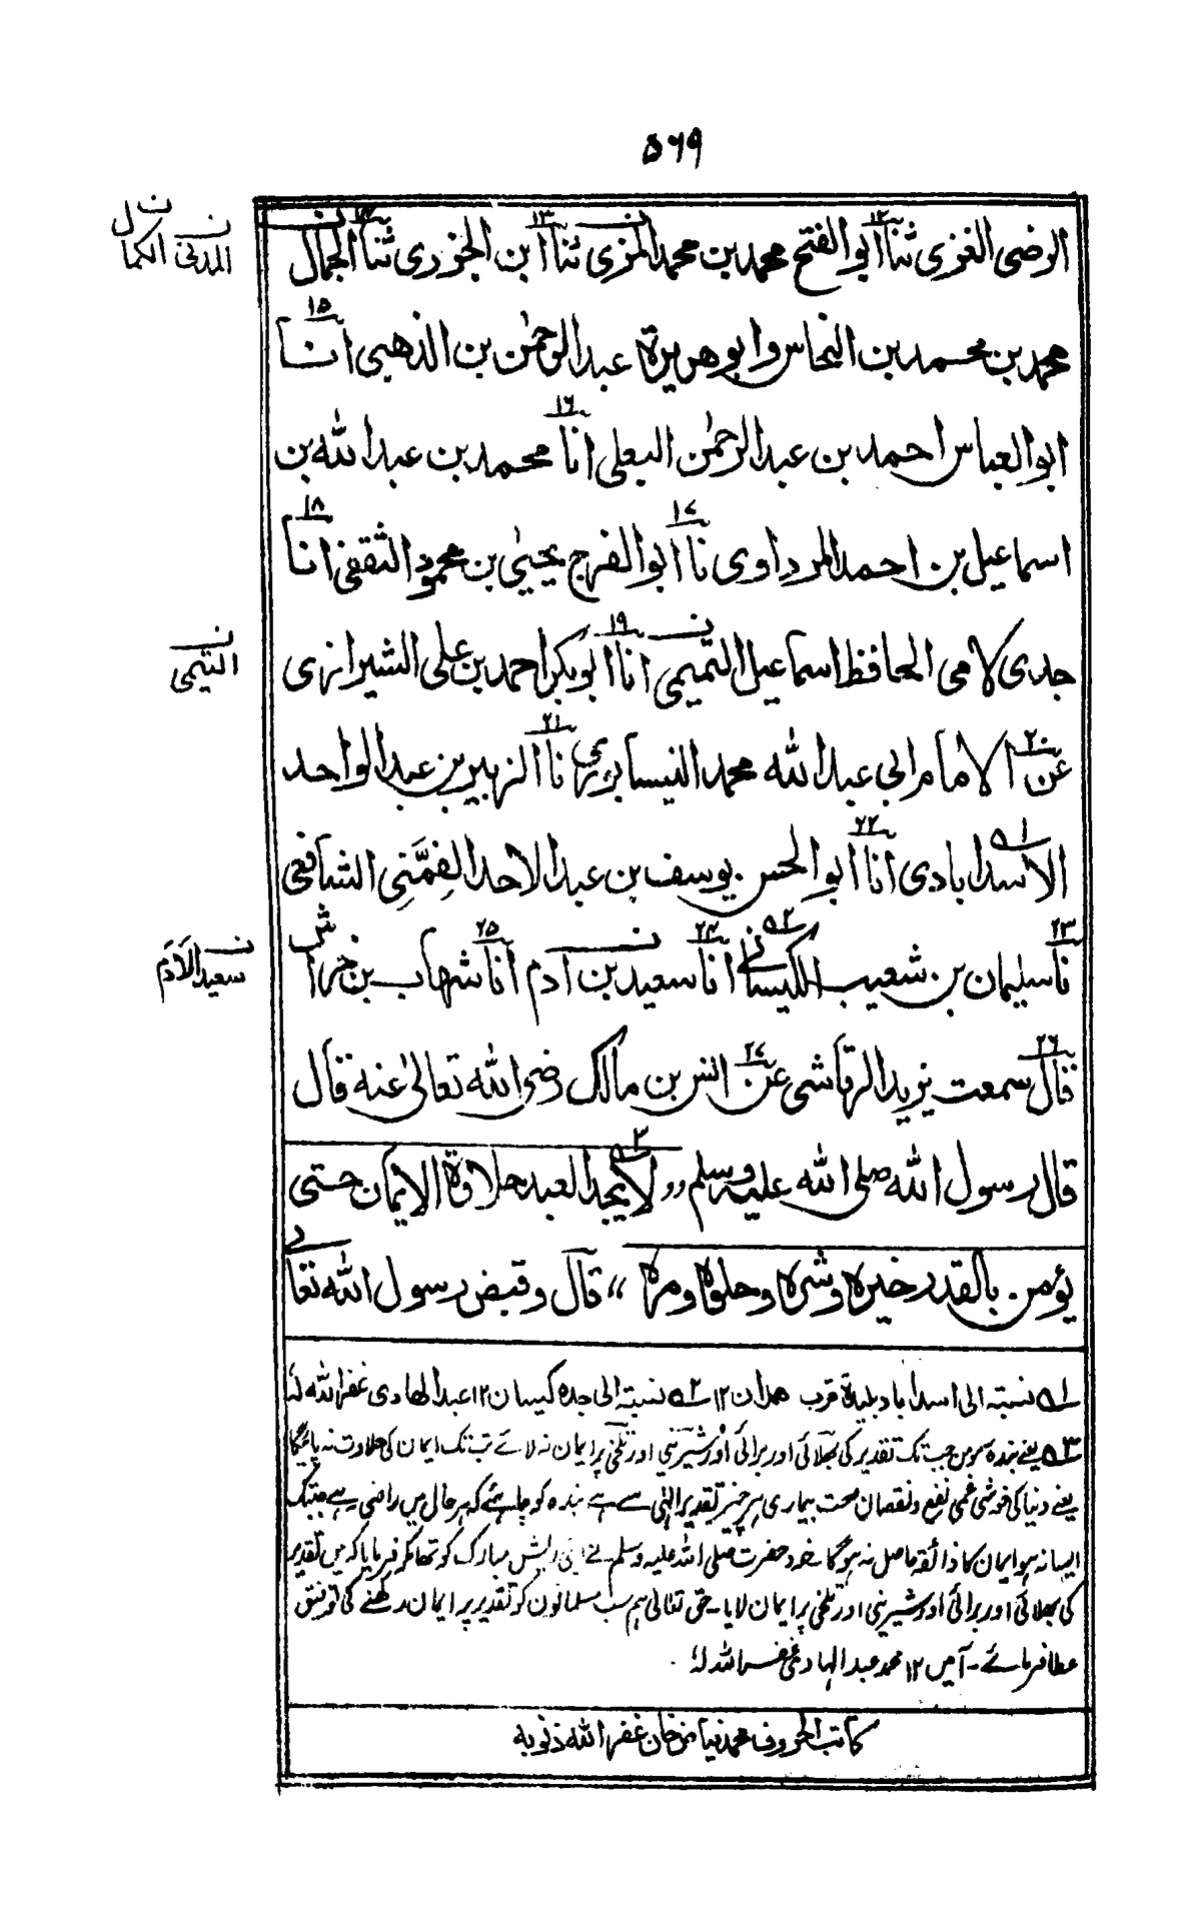 ۵۶۹
الرضی الغزی ثنا ۱۲ ابو الفتح محمد بن محمد المزی ثنا ۱۳ ابن الجزری ثنا ۱۴ الجمال
ن المدنی ن الکمال
محمد بن محمد بن النحاس وابو ھریرۃ عبد الرحمٰن بن الذھبی انا ۱۵
ابو العباس احمد بن عبد الرحمٰن البعلی انا ۱۶ محمد بن عبد اللہ بن
اسماعیل بن احمد المرداوی نا ۱۷ ابو الفرج یحییٰ بن محمود الثقفی انا ۱۸
جدی لامی الحافظ اسماعیل التمیمی انا ۱۹ ابو بکر احمد بن علی الشیرازی
ن التیمی
عن ۲۰ الامام ابی عبد اللہ محمد النیسابوری نا ۲۱ الزبیر بن عبد الواحد
الاسدابادی ۱؎ انا ۲۲ ابو الحسن یوسف بن عبد الاحد القِمَّنِی الشافعی
نا ۲۳ سلیمان بن شعیب الکیسانی ۲؎ انا ۲۴ سعید بن آدم انا ۲۵ شھاب بن خراش
ن سعید الآدم
قال ۲۶ سمعت یزید الرقاشی عن ۲۷ انس بن مالک رضی اللہ تعالیٰ عنہ قال
قال رسول اللہ صلی اللہ علیہ وسلم ،، لا یجد ۳؎ العبد حلاوۃ الایمان حتی
یؤمن بالقدر خیرہ وشرہ وحلوہ ومرہ ،، قال وقبض رسول اللہ تعالیٰ
۱؎ نسبتہ الی اسداباد بلیدۃ قرب ھمدان ۱۲ ۲؎ نسبتہ الی جدہ کیسان ۱۲ عبد الھادی غفر اللہ لہ
۳؎ یعنے بندہ مومن جب تک تقدیر کی بھلائی اور برائی اور شیرینی اور تلخی پر ایمان نہ لائے تب تک ایمان کی حلاوت نہ پائیگا
یعنے دنیا کی خوشی غمی نفع ونقصان صحت بیماری ہر چیز تقدیر الٰہی سے ہے بندہ کو چاہئے کہ ہر حال میں راضی رہے جبتک
ایسا نہ ہو ایمان کا ذائقہ حاصل نہ ہوگا خود حضرت صلی اللہ علیہ وسلم نے اپنی ریش مبارک کو تھامکر فرمایا کہ میں تقدیر
کی بھلائی اور برائی اور شیرینی اور تلخی پر ایمان لایا۔ حق تعالیٰ ہم سب مسلمانوں کو تقدیر پر ایمان رکھنے کی توفیق
عطا فرمائے۔ آمین ۱۲ محمد عبد الہادی غفر اللہ لہٗ
کاتب الحروف محمد نیاز خان غفر اللہ ذنوبہ